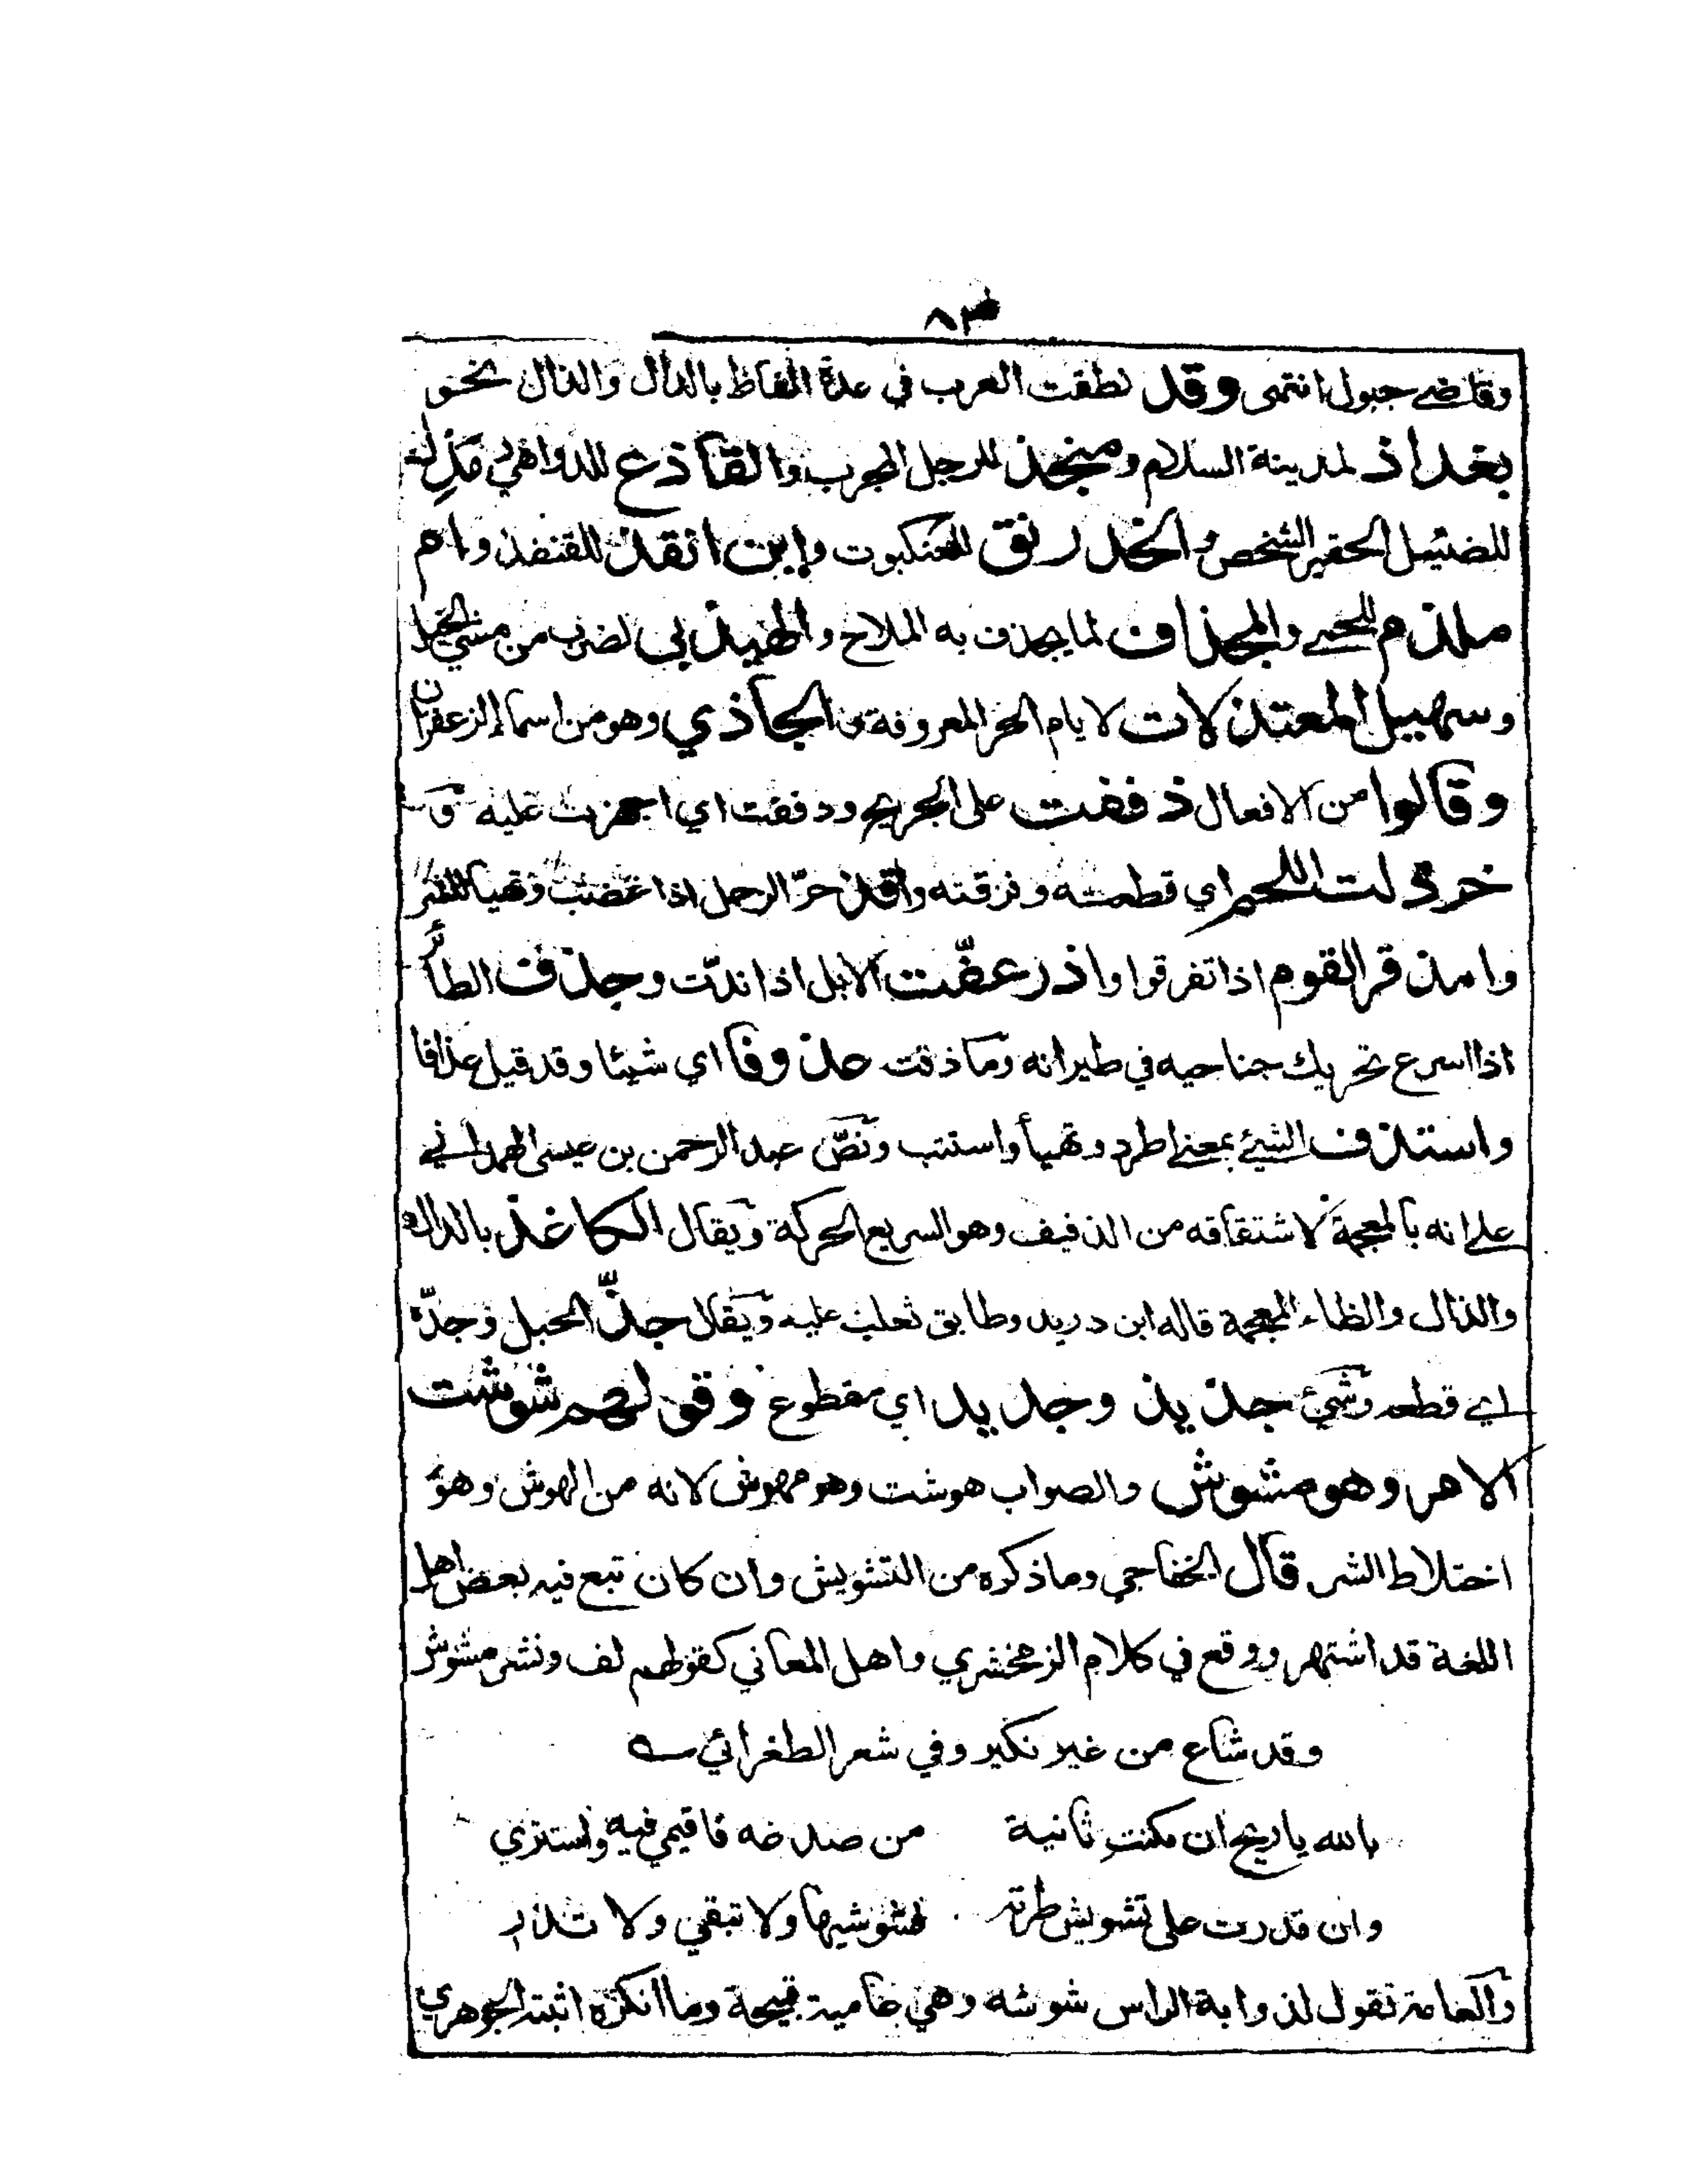 ٨٣
وقاضي جبول انتمى وقد نطقت العرب في عدة الفاظ بالدال والذال نحو
بغداذ لمدينة السلام ومنجذ للرجل المجرب والقاذع للدواهي ومذل
للضئيل الحقير الشخص والخدرنق للعنكبوت وابن انقذ للقنفذ وام
ملذم للحمى والمجذاف لما يجذف به الملاح والهيذبى لضرب من مشي الخيل
وسهيل المعتذلات لايام الحر المعروفة والجاذي وهو من اسماء الزعفران
وقالوا من الافعال ذففت على الجريح ودففت اي اجهزت عليه و
خرذلت اللحم اي قطعته وفرقته واقذحر الرجل اذا غضب وتهيا للشر
وامذقر القوم اذا تفرقوا واذرعفت الابل اذا ندت وجذف الطائر
اذا اسرع تحريك جناحيه في طيرانه وما ذقت عذوفا اي شيئا وقد قيل عذافا
واستذف الشيئ بمعنى اطرد وتهيأ واستتب ونصّ عبد الرحمن بن عيسى الهمداني
على انه بالمعجمة لاشتقاقه من الذفيف وهو السريع الحركة ويقال الكاغذ بالدال
والذال والظاء المعجمة قاله ابن دريد وطابق ثعلب عليه ويقال جذّ الحبل وجدّه
اي قطعه وشيئ جذيذ وجديد اي مقطوع وقولهم شوشت
الامر وهو مشوش والصواب هوشت وهو مهوش لانه من الهوش وهو
اختلاط الشر قال الخفاجي وما ذكره من التشويش وان كان تبع فيه بعض اهل
اللغة قد اشتهر ووقع في كلام الزمخشري واهل المعاني كقولهم لف ونشر مشوش
وقد شاع من غير نكير وفي شعر الطغرائي
بالله يا ريح ان مكنتِ ثانية من صدغه فاقيمي فيه واستتري
وان قدرت على تشويش طرته فشوشيها ولا تبقي ولا تذر
والعامة تقول لذوابة الراس شوشه وهي عامية قبيحة وما انكره اثبته الجوهري